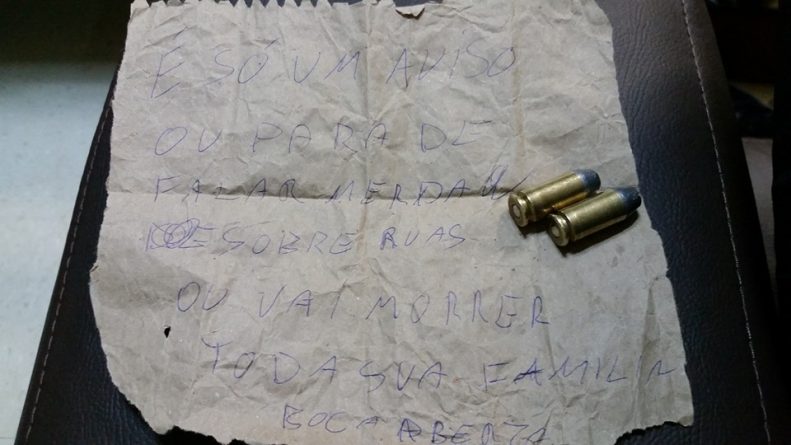 É SÓ UM AVISO
OU PARA DE
FALAR MERDA
SOBRE RUAS
OU VAI MORRER
TODA SUA FAMILIA
BOCA ABERTA